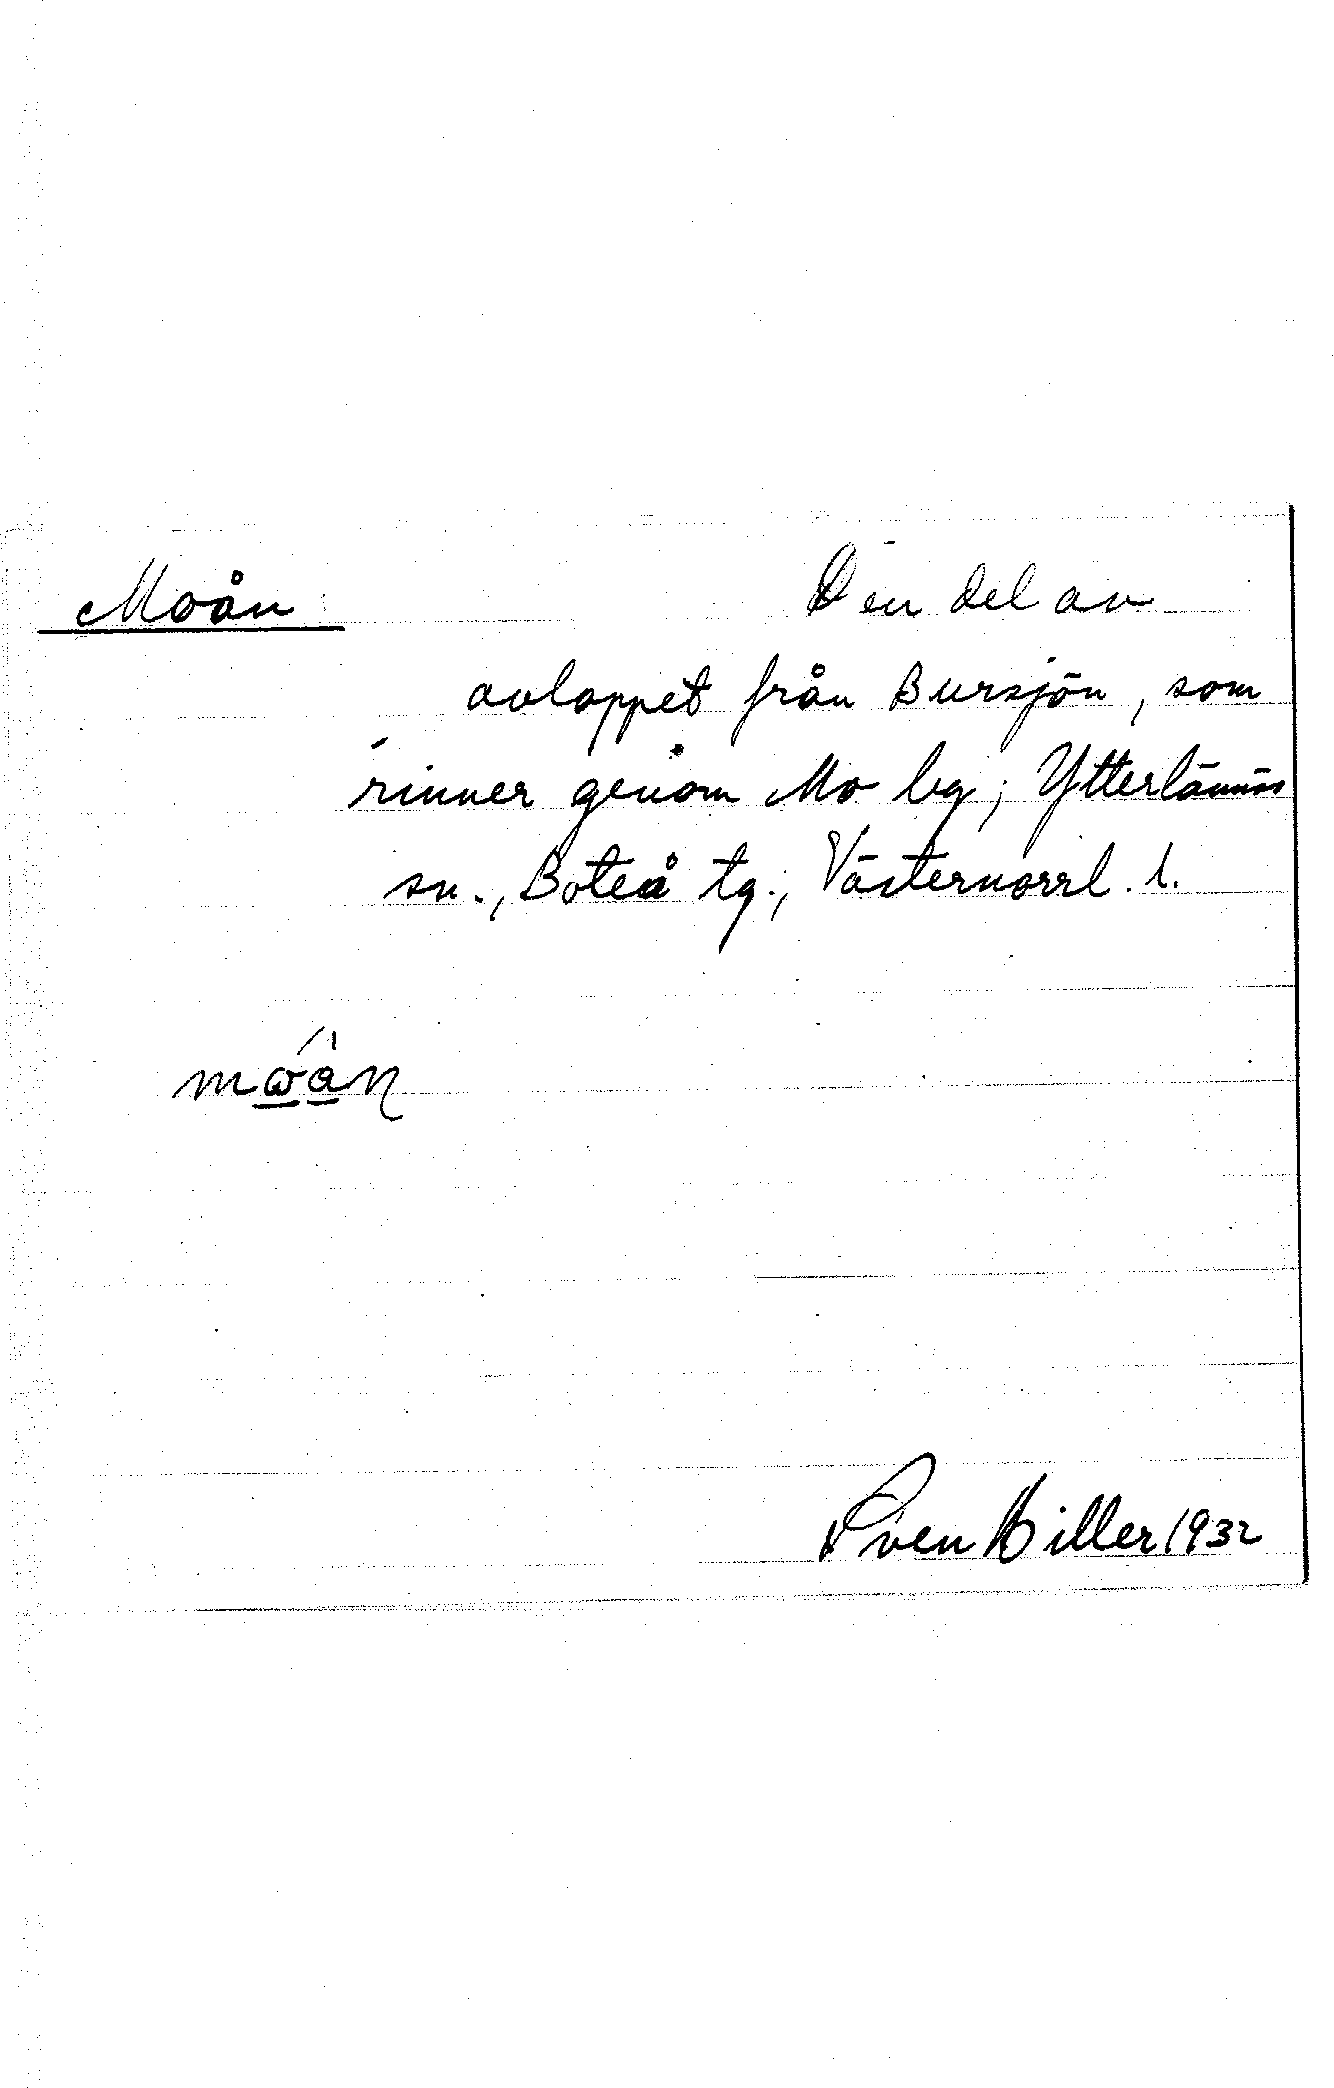 Moån Den del av
avloppet från Bursjön, som
rinner genom Mo by, Ytterlännäs
sn., Boteå tg., Västernorrl. l.
mωȧn
Sven Hiller 1932